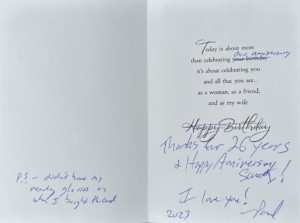 P.S. – didn't have my
reading glasses on
when I bought the card
Today is about more
our anniversary
than celebrating your birthday
it's about celebrating you
and all that you are...
as a woman, as a friend,
and as my wife.
Happy Birthday
Thanks for 26 years
& Happy Anniversary
I love you!
2023